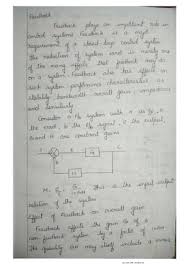 Feedback
Feedback plays an important role in
control systems Feedback is a major
requirement of a closed-loop control system
The reduction of system error is merely one
of the many effects that feedback may do
on a system. Feedback also has effects on
such system performance characteristics as
stability bandwidth overall gain,
and sensitivity
Consider a system with r as i/p,
the error, b the f/b signal, c the output,
G and H are constant gains
G
H
M = This is the input output
relation of the system
Effect of Feedback on overall gain
Feedback affects the gain G of a
non feedback system by a factor of
The quantity GH may itself include a minus